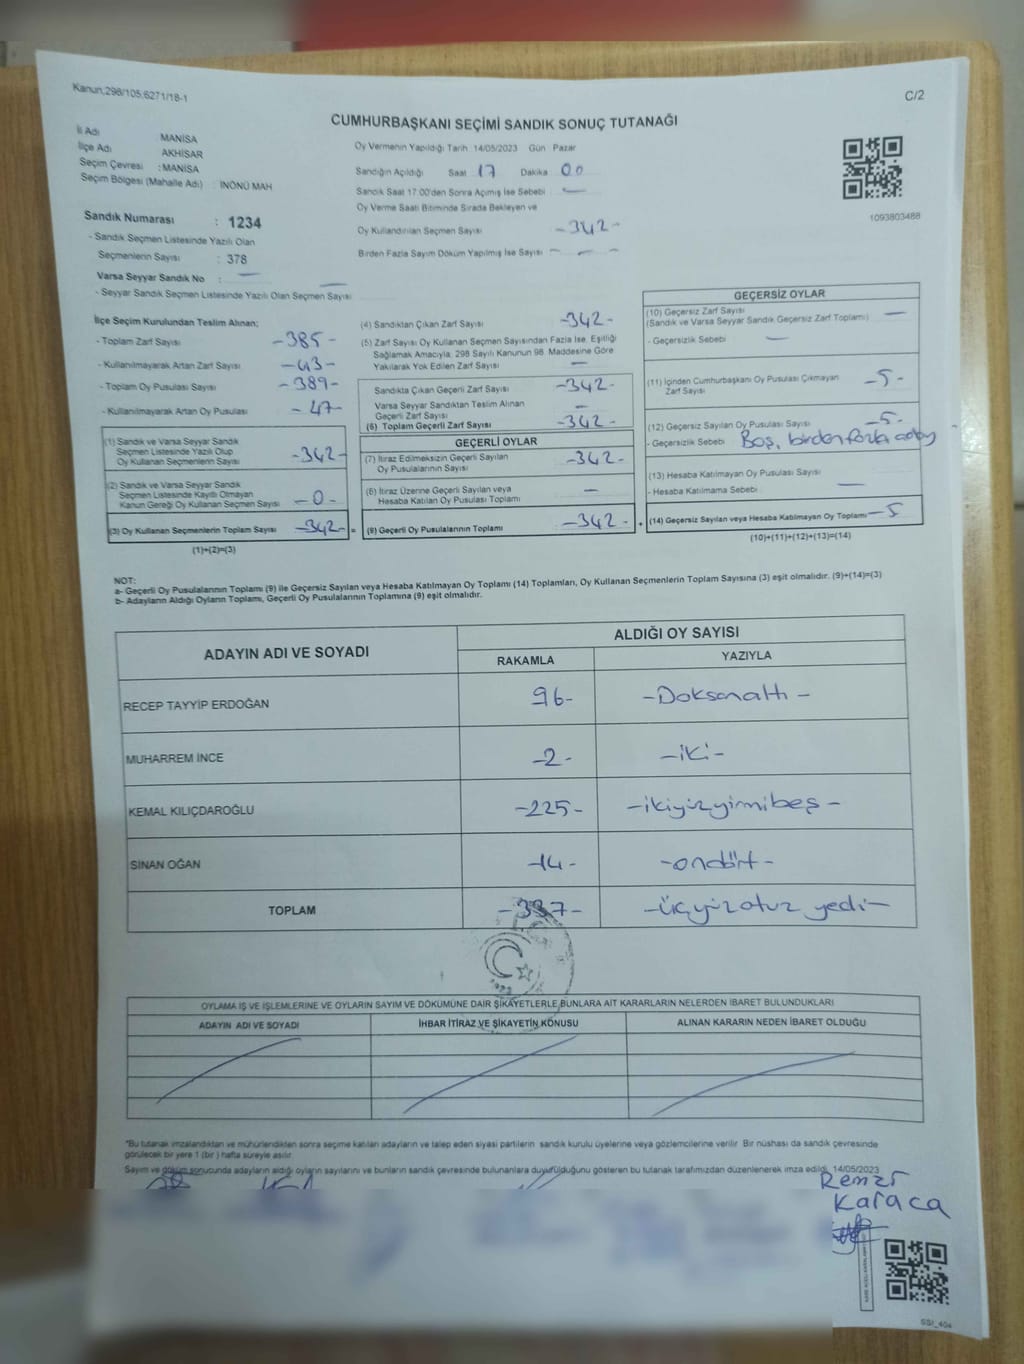 Kanun,298/105,6271/18-1
C/2
CUMHURBAŞKANI SEÇİMİ SANDIK SONUÇ TUTANAĞI
İl Adı MANİSA
İlçe Adı AKHİSAR
Seçim Çevresi : MANİSA
Seçim Bölgesi (Mahalle Adı) : İNÖNÜ MAH
Oy Vermenin Yapıldığı Tarih 14/05/2023 Gün Pazar
Sandığın Açıldığı Saat 17 Dakika 00
Sandık Saat 17:00'den Sonra Açılmış İse Sebebi —
Oy Verme Saati Bitiminde Sırada Bekleyen ve
Oy Kullandırılan Seçmen Sayısı -342-
Birden Fazla Sayım Döküm Yapılmış İse Sayısı - - -
1093803488
Sandık Numarası : 1234
- Sandık Seçmen Listesinde Yazılı Olan
Seçmenlerin Sayısı : 378
Varsa Seyyar Sandık No : —
- Seyyar Sandık Seçmen Listesinde Yazılı Olan Seçmen Sayısı —
İlçe Seçim Kurulundan Teslim Alınan;
- Toplam Zarf Sayısı -385-
- Kullanılmayarak Artan Zarf Sayısı -43-
- Toplam Oy Pusulası Sayısı -389-
- Kullanılmayarak Artan Oy Pusulası -47-
(1) Sandık ve Varsa Seyyar Sandık
Seçmen Listesinde Yazılı Olup
Oy Kullanan Seçmenlerin Sayısı -342-
(2) Sandık ve Varsa Seyyar Sandık
Seçmen Listesinde Kayıtlı Olmayan
Kanun Gereği Oy Kullanan Seçmen Sayısı -0-
(3) Oy Kullanan Seçmenlerin Toplam Sayısı -342- =
(1)+(2)=(3)
(4) Sandıktan Çıkan Zarf Sayısı -342-
(5) Zarf Sayısı Oy Kullanan Seçmen Sayısından Fazla İse, Eşitliği
Sağlamak Amacıyla, 298 Sayılı Kanunun 98. Maddesine Göre
Yakılarak Yok Edilen Zarf Sayısı —
Sandıkta Çıkan Geçerli Zarf Sayısı -342-
Varsa Seyyar Sandıktan Teslim Alınan
Geçerli Zarf Sayısı —
(6) Toplam Geçerli Zarf Sayısı -342-
GEÇERLİ OYLAR
(7) İtiraz Edilmeksizin Geçerli Sayılan
Oy Pusulalarının Sayısı -342-
İtiraz Üzerine Geçerli Sayılan veya
Hesaba Katılan Oy Pusulası Toplamı —
(9) Geçerli Oy Pusulalarının Toplamı -342- +
GEÇERSİZ OYLAR
(10) Geçersiz Zarf Sayısı
(Sandık ve Varsa Seyyar Sandık Geçersiz Zarf Toplamı) —
- Geçersizlik Sebebi —
(11) İçinden Cumhurbaşkanı Oy Pusulası Çıkmayan
Zarf Sayısı -5-
(12) Geçersiz Sayılan Oy Pusulası Sayısı -5-
- Geçersizlik Sebebi Boş, birden fazla aday -
(13) Hesaba Katılmayan Oy Pusulası Sayısı
- Hesaba Katılmama Sebebi —
(14) Geçersiz Sayılan veya Hesaba Katılmayan Oy Toplamı -5
(10)+(11)+(12)+(13)=(14)
NOT:
a- Geçerli Oy Pusulalarının Toplamı (9) ile Geçersiz Sayılan veya Hesaba Katılmayan Oy Toplamı (14) Toplamları, Oy Kullanan Seçmenlerin Toplam Sayısına (3) eşit olmalıdır. (9)+(14)=(3)
b- Adayların Aldığı Oyların Toplamı, Geçerli Oy Pusulalarının Toplamına (9) eşit olmalıdır.
ADAYIN ADI VE SOYADI
ALDIĞI OY SAYISI
RAKAMLA YAZIYLA
RECEP TAYYİP ERDOĞAN 96- -Doksanaltı-
MUHARREM İNCE -2- -iki-
KEMAL KILIÇDAROĞLU -225- -ikiyüzyirmibeş-
SİNAN OĞAN -14- -ondört-
TOPLAM -337- -üçyüzotuz yedi-
OYLAMA İŞ VE İŞLEMLERİNE VE OYLARIN SAYIM VE DÖKÜMÜNE DAİR ŞİKAYETLERLE BUNLARA AİT KARARLARIN NELERDEN İBARET BULUNDUKLARI
ADAYIN ADI VE SOYADI İHBAR İTİRAZ VE ŞİKAYETİN KONUSU ALINAN KARARIN NEDEN İBARET OLDUĞU
*Bu tutanak imzalandıktan ve mühürlendikten sonra seçime katılan adayların ve talep eden siyasi partilerin sandık kurulu üyelerine veya gözlemcilerine verilir. Bir nüshası da sandık çevresinde
görülecek bir yere 1 (bir) hafta süreyle asılır.
Sayım ve döküm sonucunda adayların aldığı oyların sayılarını ve bunların sandık çevresinde bulunanlara duyurulduğunu gösteren bu tutanak tarafımızdan düzenlenerek imza edildi. 14/05/2023
Remzi
Karaca